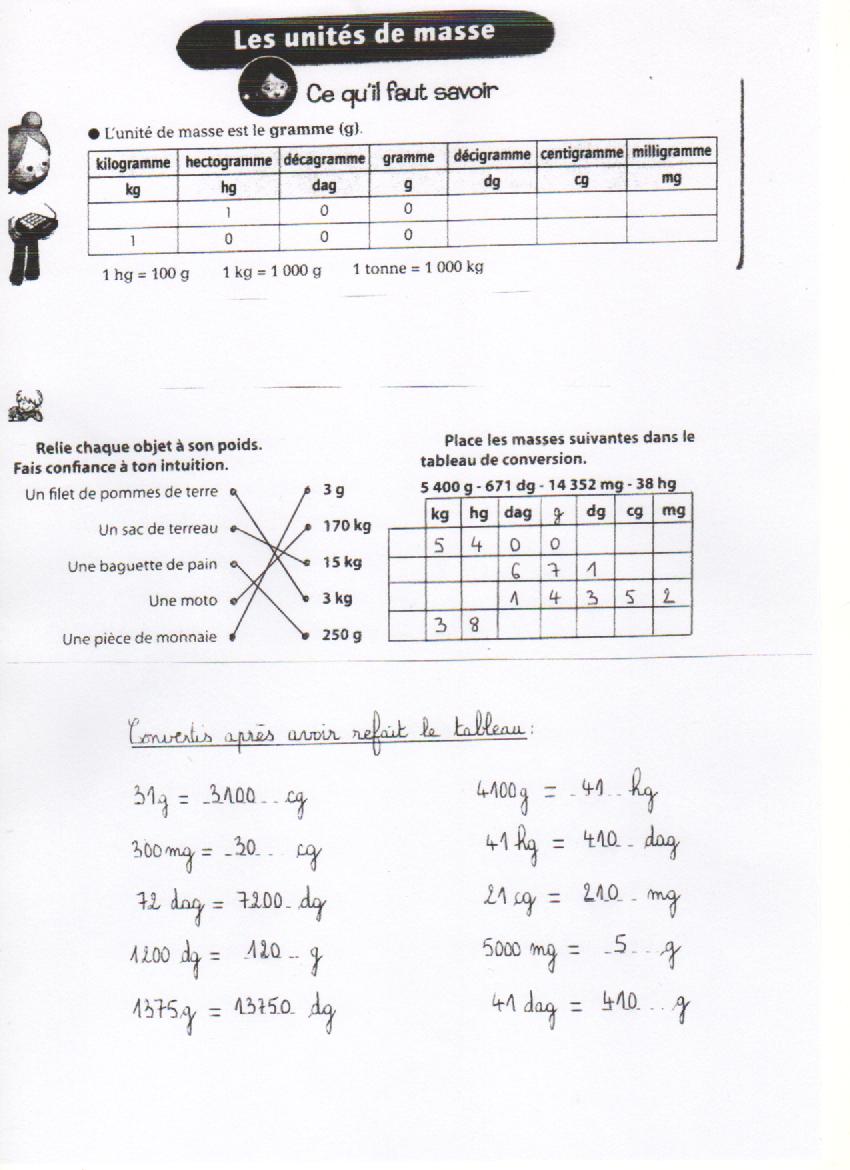 Les unités de masse
Ce qu'il faut savoir
● L'unité de masse est le gramme (g).
kilogramme hectogramme décagramme gramme décigramme centigramme milligramme
kg hg dag g dg cg mg
1 0 0
1 0 0 0
1 hg = 100 g 1 kg = 1 000 g 1 tonne = 1 000 kg
Relie chaque objet à son poids.
Fais confiance à ton intuition.
Un filet de pommes de terre 3 g
Un sac de terreau 170 kg
Une baguette de pain 15 kg
Une moto 3 kg
Une pièce de monnaie 250 g
Place les masses suivantes dans le
tableau de conversion.
5 400 g - 671 dg - 14 352 mg - 38 hg
kg hg dag g dg cg mg
5 4 0 0
6 7 1
1 4 3 5 2
3 8
Convertis après avoir refait le tableau :
31g = 3100 cg
300 mg = 30 cg
72 dag = 7200 dg
1200 dg = 120 g
1375g = 13750 dg
4100g = 41 hg
41 hg = 410 dag
21 cg = 210 mg
5000 mg = 5 g
41 dag = 410 g